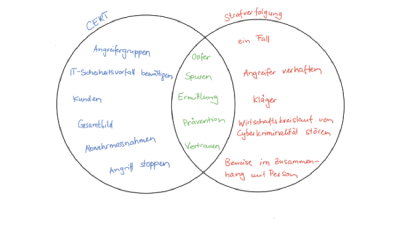 CERT
Strafverfolgung
Angreifergruppen
IT-Sicherheitsvorfall bewältigen
Kunden
Gesamtbild
Abwehrmassnahmen
Angriff stoppen
Opfer
Spuren
Ermittlung
Prävention
Vertrauen
ein Fall
Angreifer verhaften
Kläger
Wirtschaftskreislauf von
Cyberkriminalität stören
Beweise im Zusammen-
hang mit Person